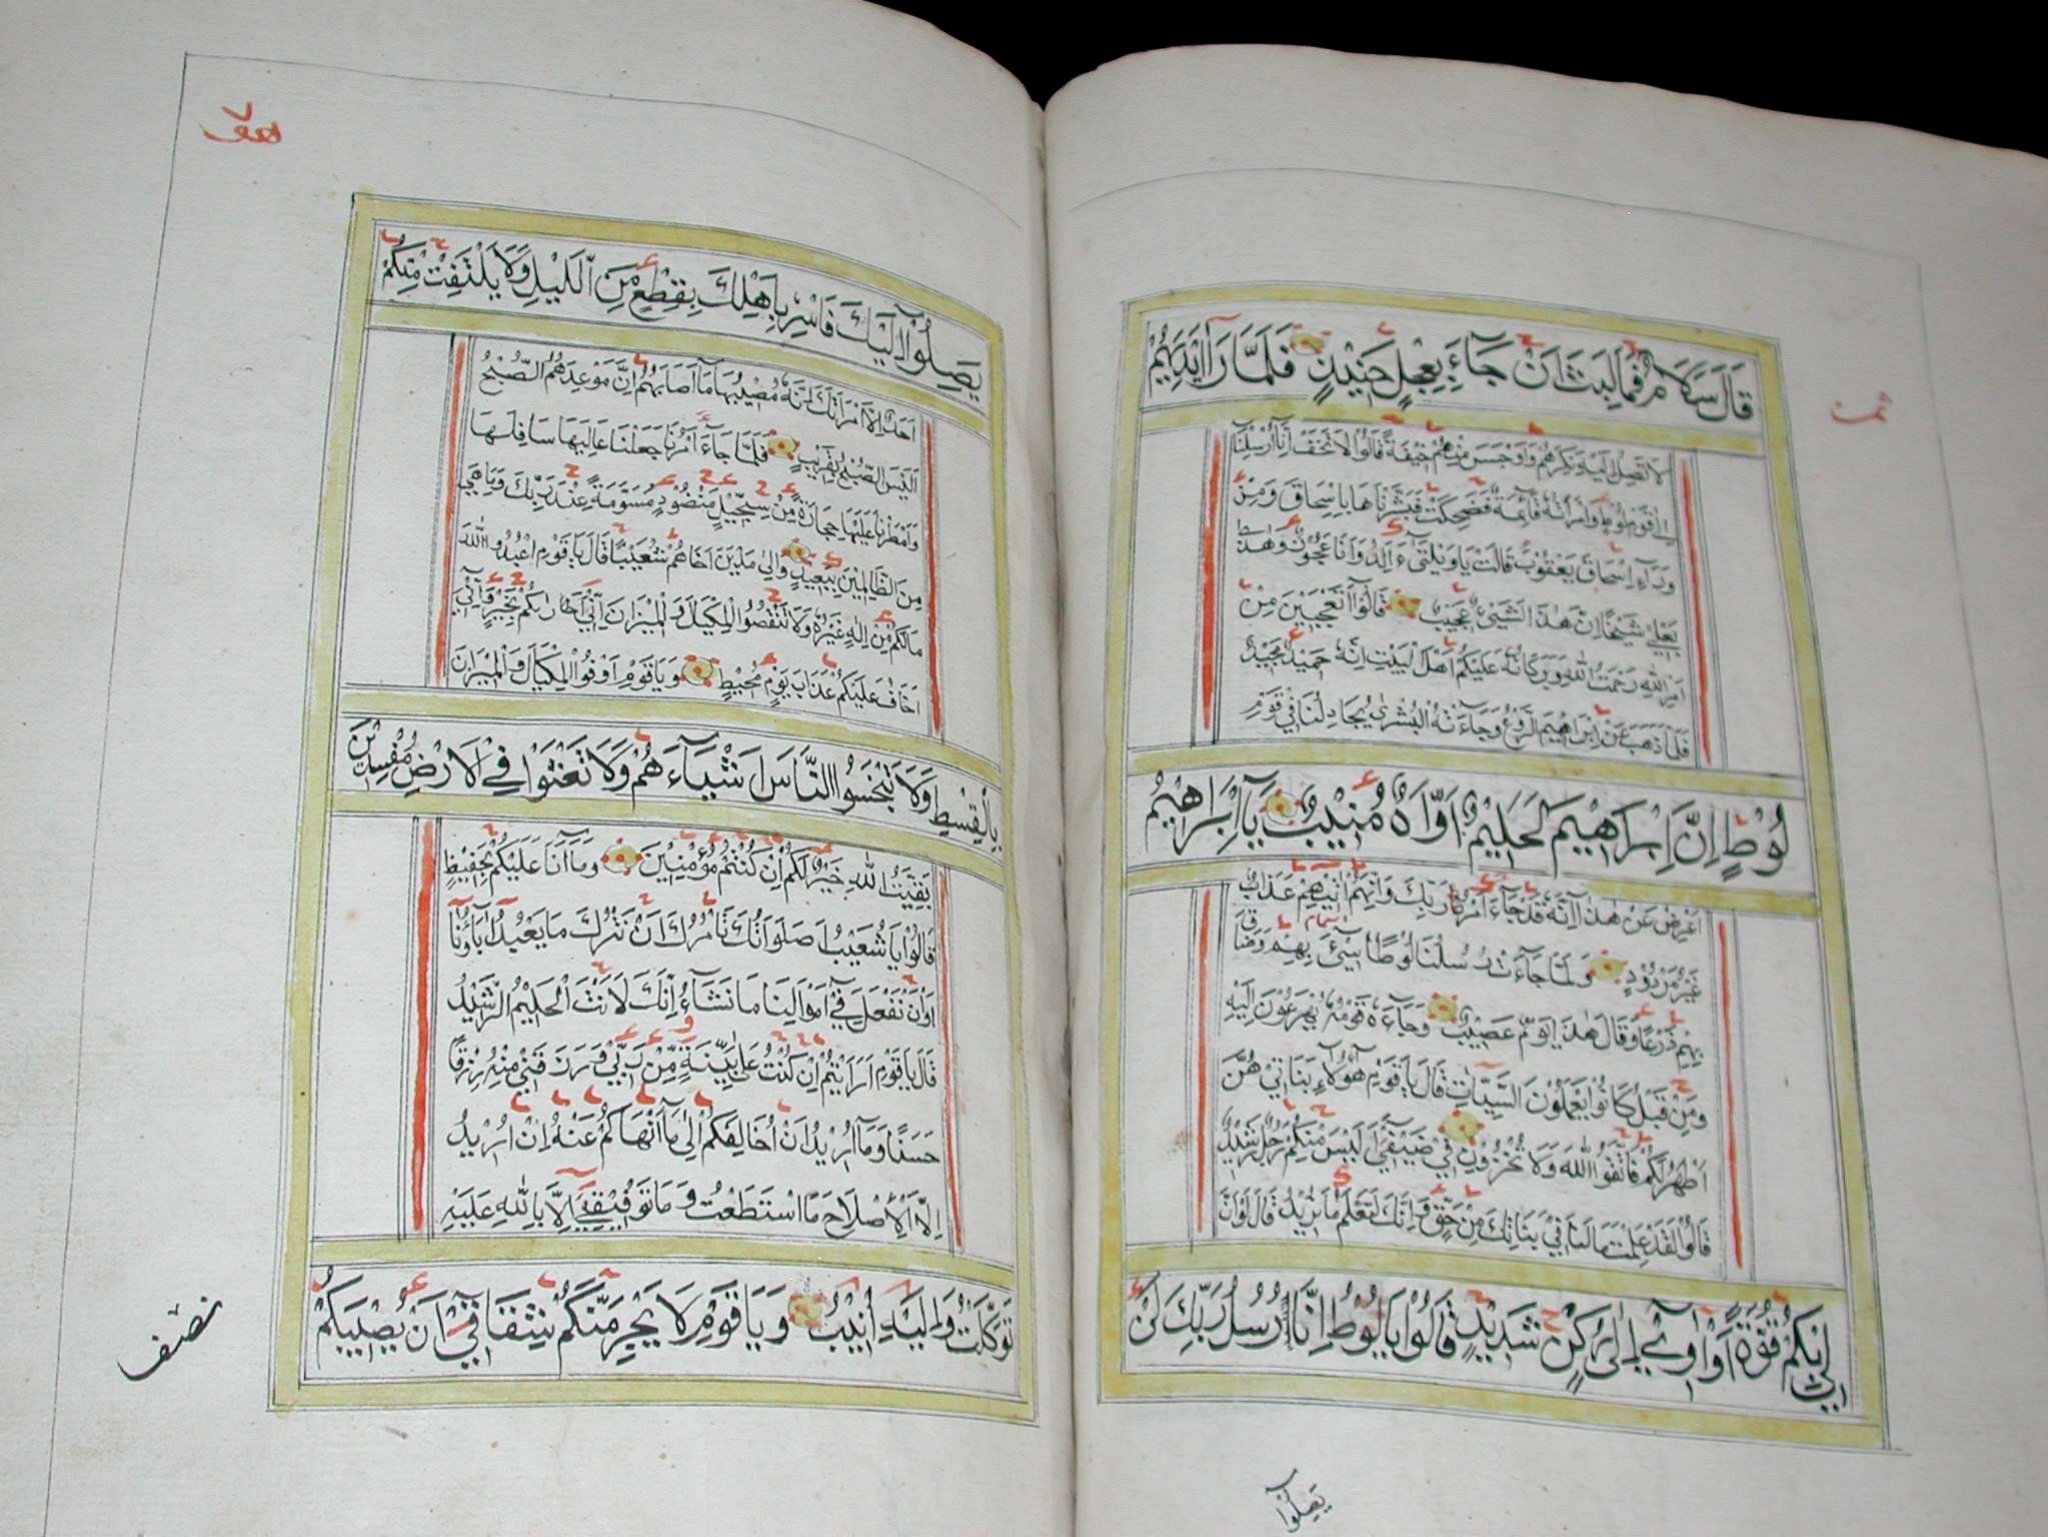 ثمن
قَالَ سَلَامٌ فَمَا لَبِثَ اَنْ جَآءَ بِعِجْلٍ حَنِيْذٍ فَلَمَّا رَاٰ اَيْدِيَهُمْ
لَا تَصِلُ اِلَيْهِ نَكِرَهُمْ وَاَوْجَسَ مِنْهُمْ خِيْفَةً قَالُوْا لَا تَخَفْ اِنَّا اُرْسِلْنَا
اِلٰى قَوْمِ لُوْطٍ وَامْرَاَتُهُ قَآئِمَةٌ فَضَحِكَتْ فَبَشَّرْنَاهَا بِاِسْحَاقَ وَمِنْ
وَرَآءِ اِسْحَاقَ يَعْقُوْبَ قَالَتْ يَا وَيْلَتٰىٓ ءَاَلِدُ وَاَنَا عَجُوْزٌ وَهٰذَا
بَعْلِيْ شَيْخًا اِنَّ هٰذَا لَشَيْئٌ عَجِيْبٌ قَالُوْآ اَتَعْجَبِيْنَ مِنْ
اَمْرِ اللّٰهِ رَحْمَتُ اللّٰهِ وَبَرَكَاتُهُ عَلَيْكُمْ اَهْلَ الْبَيْتِ اِنَّهُ حَمِيْدٌ مَجِيْدٌ
فَلَمَّا ذَهَبَ عَنْ اِبْرَاهِيْمَ الرَّوْعُ وَجَآءَتْهُ الْبُشْرٰى يُجَادِلُنَا فِيْ قَوْمِ
لُوْطٍ اِنَّ اِبْرَاهِيْمَ لَحَلِيْمٌ اَوَّاهٌ مُنِيْبٌ يَآ اِبْرَاهِيْمُ
اَعْرِضْ عَنْ هٰذَا اِنَّهُ قَدْ جَآءَ اَمْرُ رَبِّكَ وَاِنَّهُمْ اٰتِيْهِمْ عَذَابٌ
غَيْرُ مَرْدُوْدٍ وَلَمَّا جَآءَتْ رُسُلُنَا لُوْطًا سِيْئَ بِهِمْ وَضَاقَ
بِهِمْ ذَرْعًا وَقَالَ هٰذَا يَوْمٌ عَصِيْبٌ وَجَآءَهُ قَوْمُهُ يُهْرَعُوْنَ اِلَيْهِ
وَمِنْ قَبْلُ كَانُوْا يَعْمَلُوْنَ السَّيِّئَاتِ قَالَ يَا قَوْمِ هٰٓؤُلَآءِ بَنَاتِيْ هُنَّ
اَطْهَرُ لَكُمْ فَاتَّقُوا اللّٰهَ وَلَا تُخْزُوْنِ فِيْ ضَيْفِيْ اَلَيْسَ مِنْكُمْ رَجُلٌ رَشِيْدٌ
قَالُوْا لَقَدْ عَلِمْتَ مَا لَنَا فِيْ بَنَاتِكَ مِنْ حَقٍّ وَاِنَّكَ لَتَعْلَمُ مَا نُرِيْدُ قَالَ لَوْ اَنَّ
لِيْ بِكُمْ قُوَّةً اَوْ اٰوِيْ اِلٰى رُكْنٍ شَدِيْدٍ قَالُوْا يَا لُوْطُ اِنَّا رُسُلُ رَبِّكَ لَنْ
يَصِلُوْا
هود
يَصِلُوْآ اِلَيْكَ فَاَسْرِ بِاَهْلِكَ بِقِطْعٍ مِنَ الَّيْلِ وَلَا يَلْتَفِتْ مِنْكُمْ
اَحَدٌ اِلَّا امْرَاَتَكَ اِنَّهُ مُصِيْبُهَا مَآ اَصَابَهُمْ اِنَّ مَوْعِدَهُمُ الصُّبْحُ
اَلَيْسَ الصُّبْحُ بِقَرِيْبٍ فَلَمَّا جَآءَ اَمْرُنَا جَعَلْنَا عَالِيَهَا سَافِلَهَا
وَاَمْطَرْنَا عَلَيْهَا حِجَارَةً مِنْ سِجِّيْلٍ مَنْضُوْدٍ مُسَوَّمَةً عِنْدَ رَبِّكَ وَمَا هِيَ
مِنَ الظَّالِمِيْنَ بِبَعِيْدٍ وَاِلٰى مَدْيَنَ اَخَاهُمْ شُعَيْبًا قَالَ يَا قَوْمِ اعْبُدُوا اللّٰهَ
مَا لَكُمْ مِنْ اِلٰهٍ غَيْرُهُ وَلَا تَنْقُصُوا الْمِكْيَالَ وَالْمِيْزَانَ اِنِّيْ اَرَاكُمْ بِخَيْرٍ وَاِنِّيْ
اَخَافُ عَلَيْكُمْ عَذَابَ يَوْمٍ مُحِيْطٍ وَيَا قَوْمِ اَوْفُوا الْمِكْيَالَ وَالْمِيْزَانَ
بِالْقِسْطِ وَلَا تَبْخَسُوا النَّاسَ اَشْيَآءَهُمْ وَلَا تَعْثَوْا فِي الْاَرْضِ مُفْسِدِيْنَ
بَقِيَّتُ اللّٰهِ خَيْرٌ لَكُمْ اِنْ كُنْتُمْ مُؤْمِنِيْنَ وَمَآ اَنَا عَلَيْكُمْ بِحَفِيْظٍ
قَالُوْا يَا شُعَيْبُ اَصَلَوَاتُكَ تَاْمُرُكَ اَنْ نَتْرُكَ مَا يَعْبُدُ اٰبَآؤُنَآ
اَوْ اَنْ نَفْعَلَ فِيْٓ اَمْوَالِنَا مَا نَشَآءُ اِنَّكَ لَاَنْتَ الْحَلِيْمُ الرَّشِيْدُ
قَالَ يَا قَوْمِ اَرَاَيْتُمْ اِنْ كُنْتُ عَلٰى بَيِّنَةٍ مِنْ رَبِّيْ وَرَزَقَنِيْ مِنْهُ رِزْقًا
حَسَنًا وَمَآ اُرِيْدُ اَنْ اُخَالِفَكُمْ اِلٰى مَآ اَنْهَاكُمْ عَنْهُ اِنْ اُرِيْدُ
اِلَّا الْاِصْلَاحَ مَا اسْتَطَعْتُ وَمَا تَوْفِيْقِيْٓ اِلَّا بِاللّٰهِ عَلَيْهِ
تَوَكَّلْتُ وَاِلَيْهِ اُنِيْبُ وَيَا قَوْمِ لَا يَجْرِمَنَّكُمْ شِقَاقِيْٓ اَنْ يُصِيْبَكُمْ
نصف